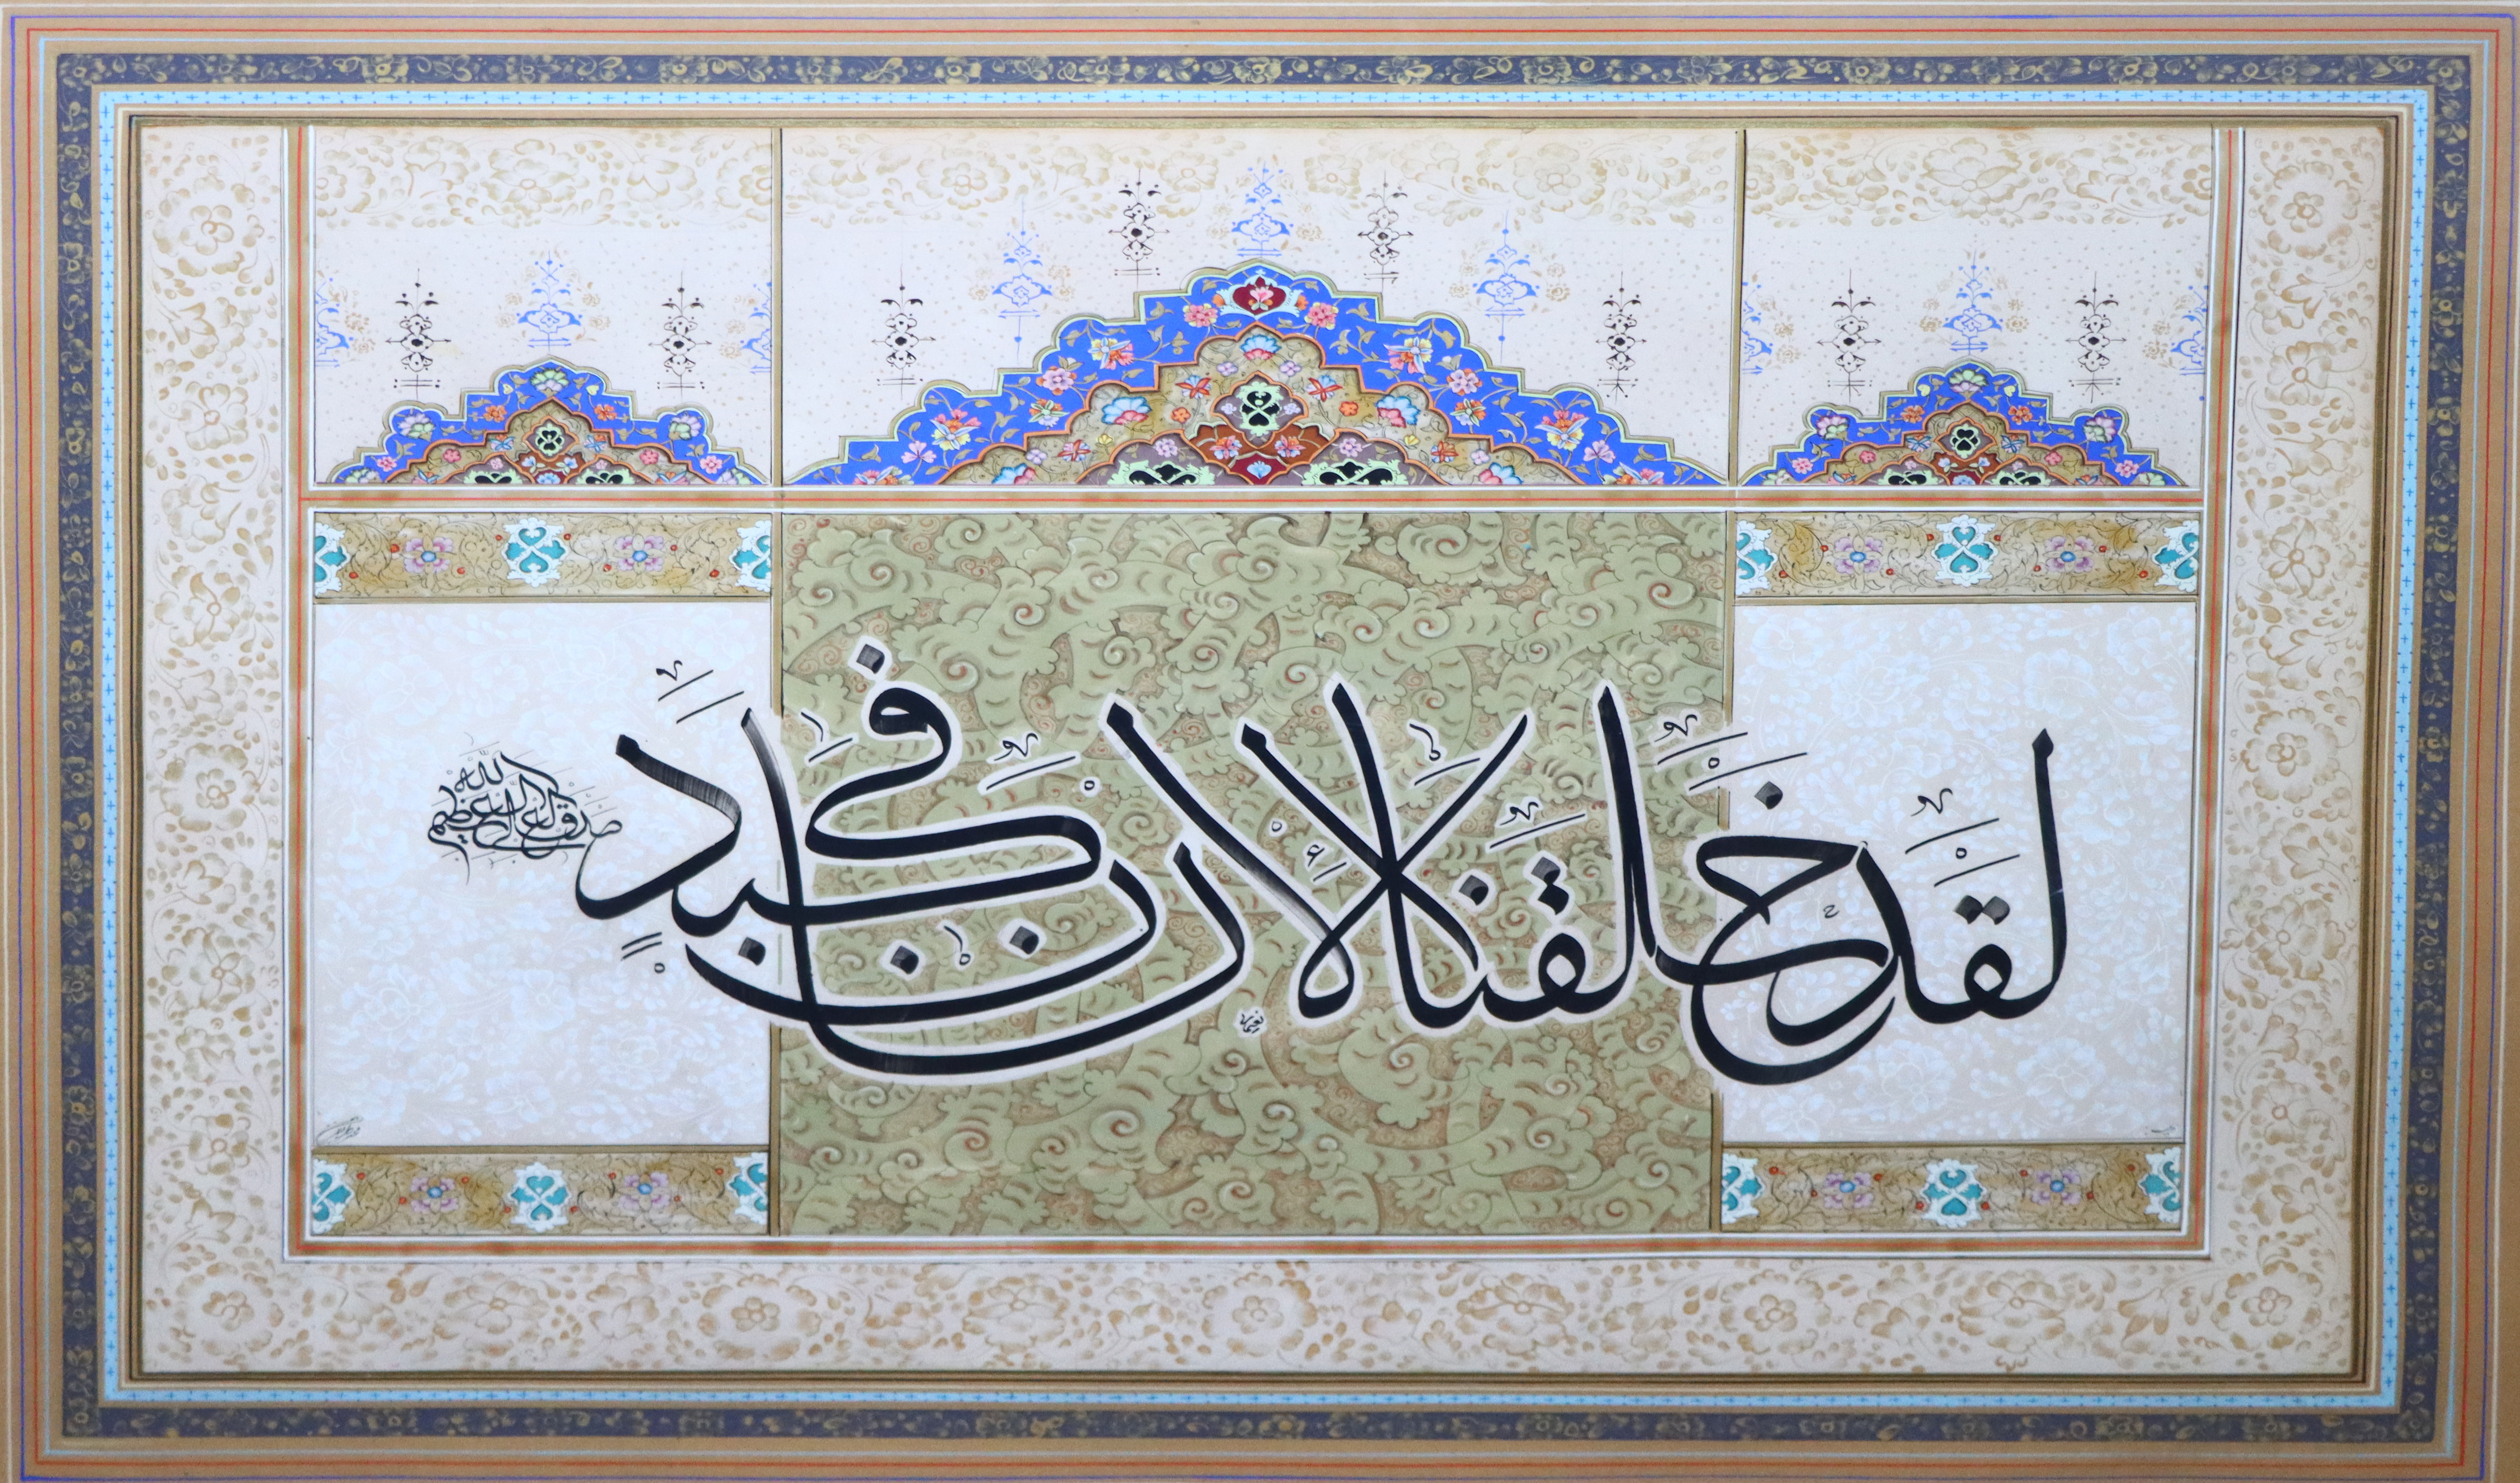 لَقَدْ خَلَقْنَا الْإِنْسَانَ فِي كَبَدٍ
صدق الله العلي العظيم